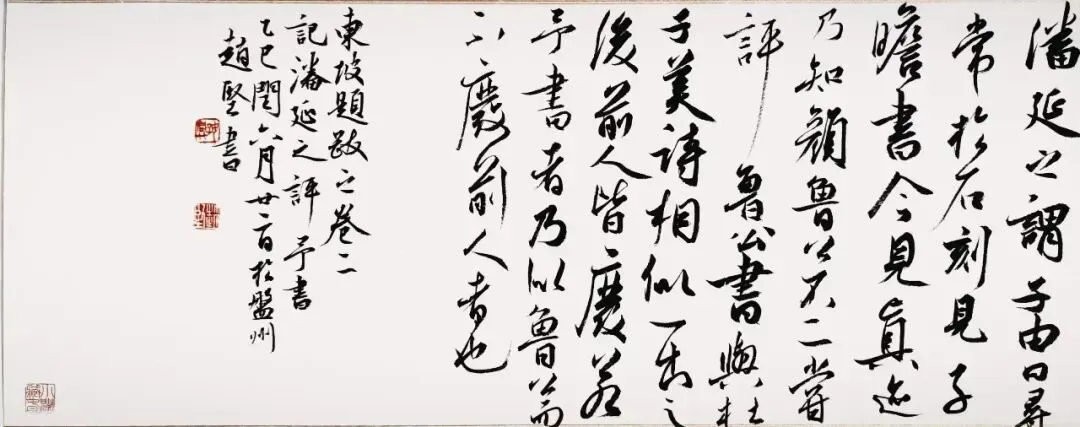 潘延之謂子由曰尋
常於石刻見子
瞻書今見真迹
乃知顏魯公不二嘗
評魯公書與杜
子美詩相似一出之
後前人皆廢若
予書者乃似魯公而
不廢前人者也
東坡題跋之卷二
記潘延之評予書
乙巳閏六月廿二日於盤州
趙堅書